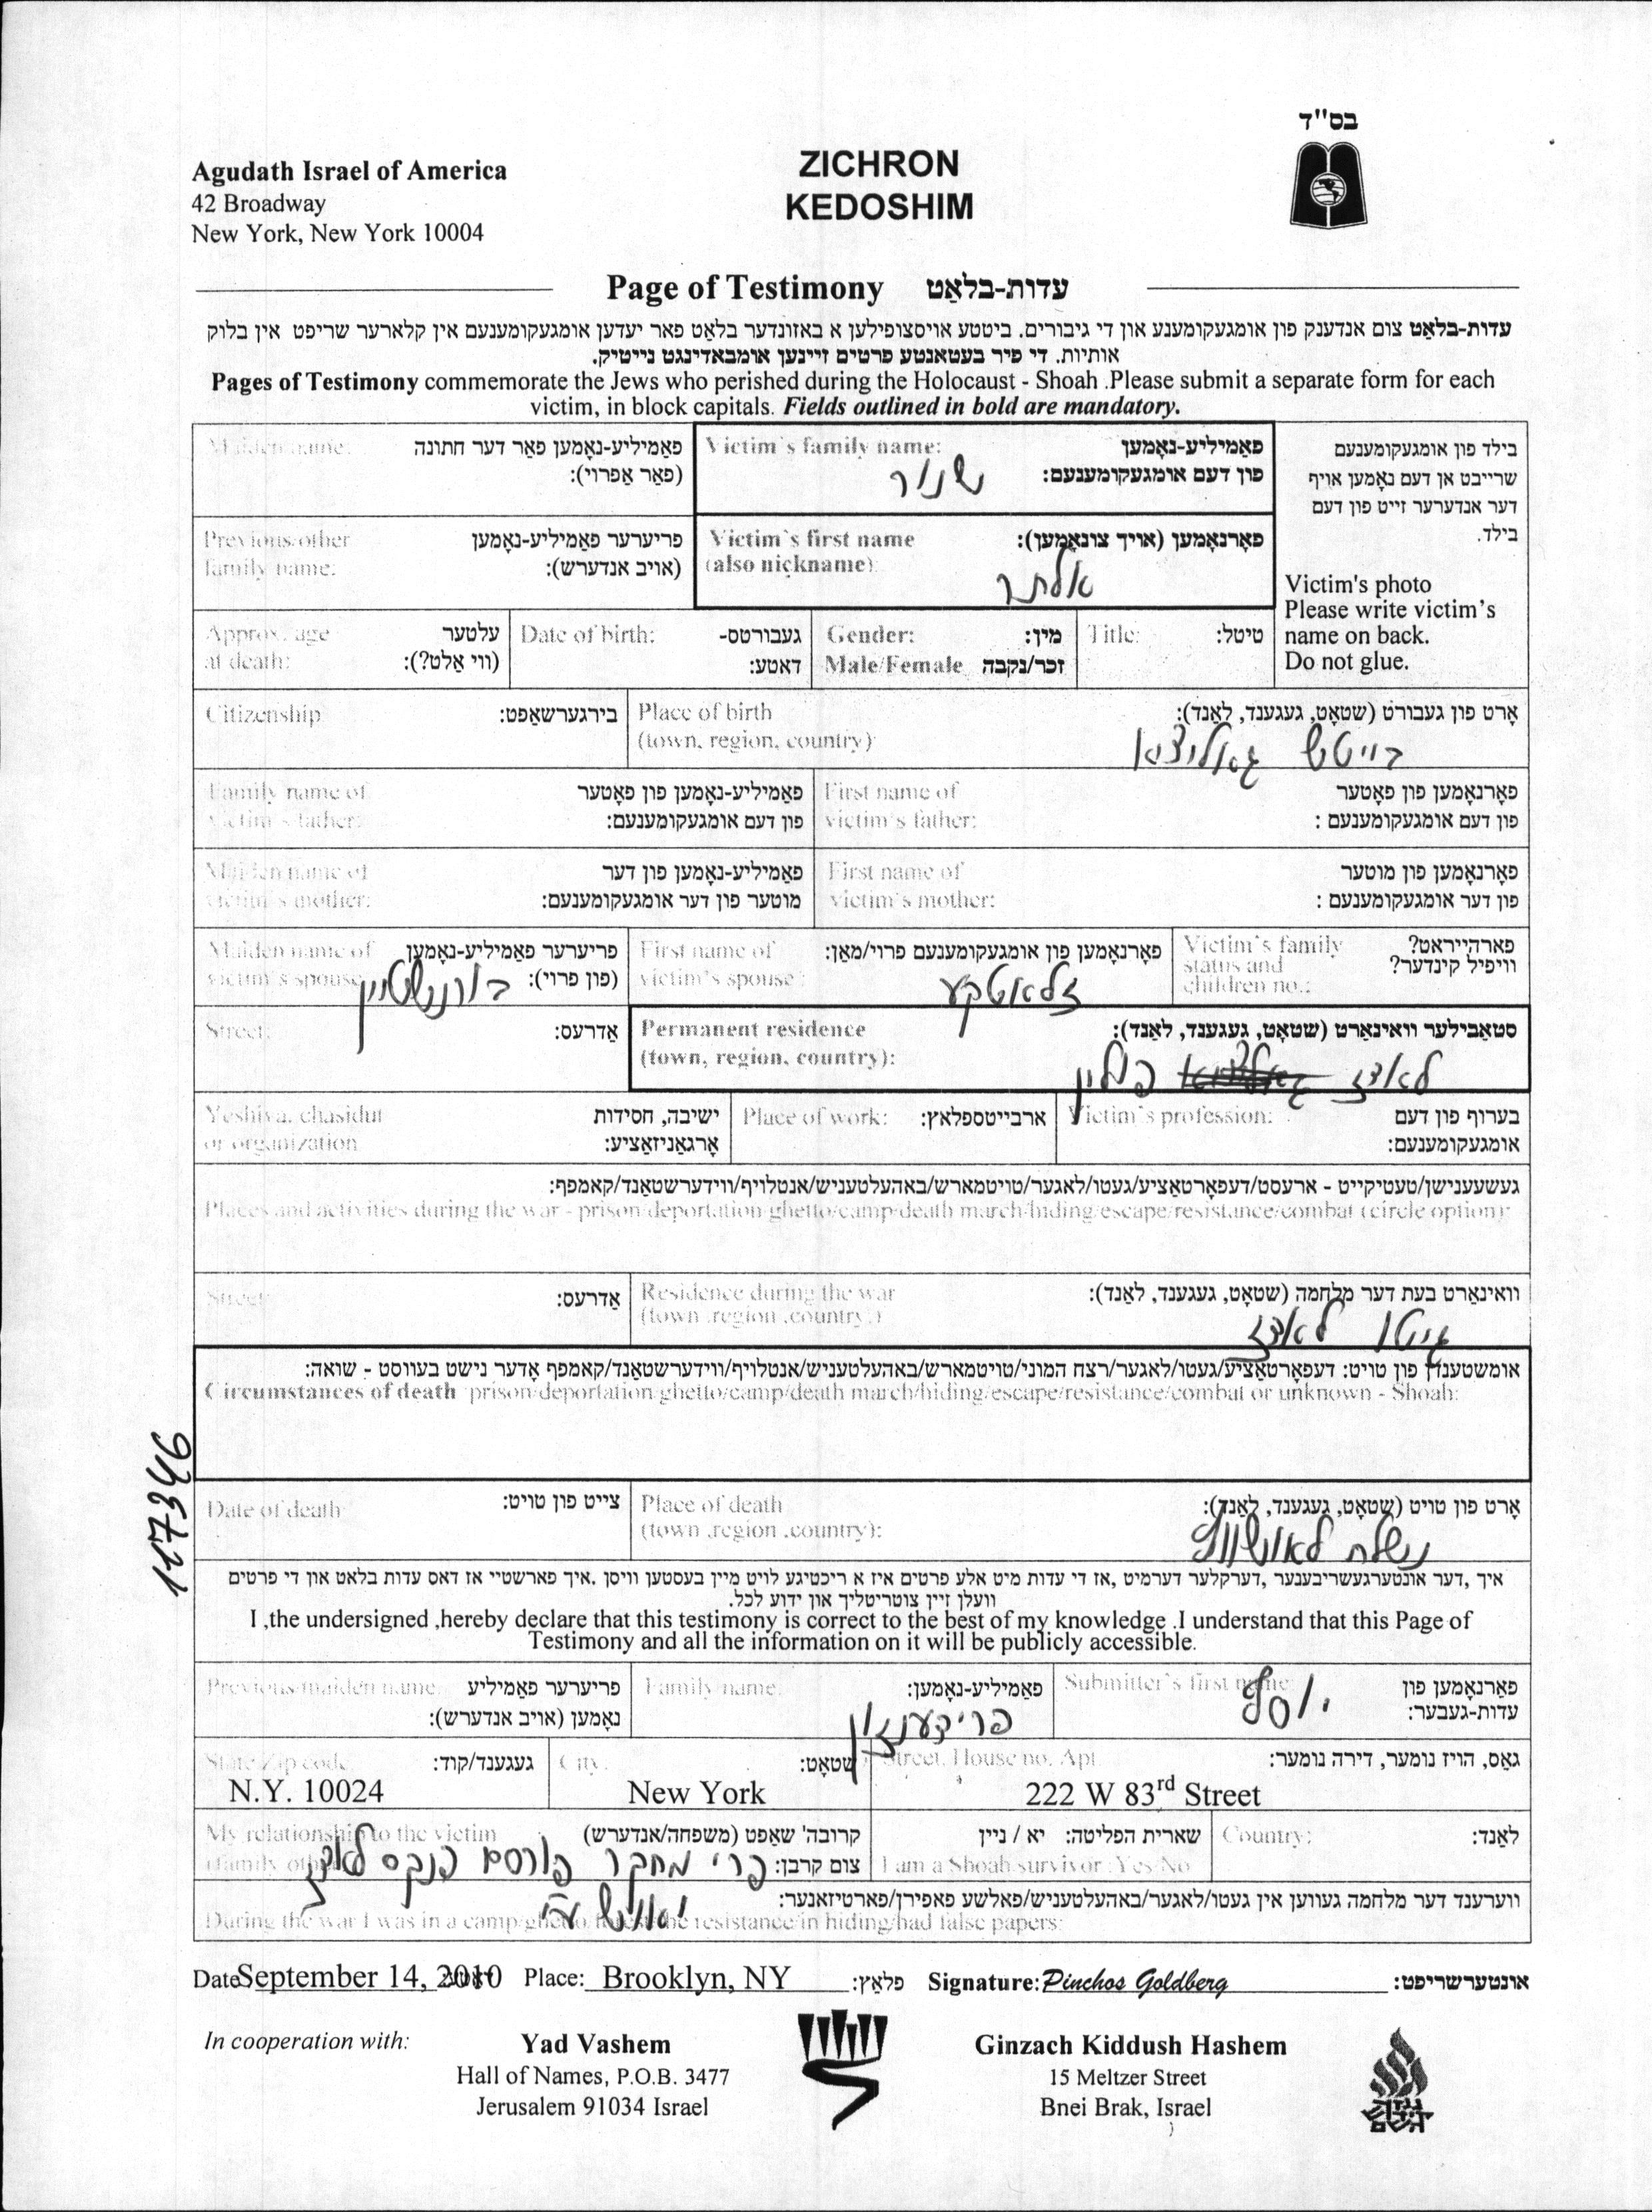 בס"ד
Agudath Israel of America
42 Broadway
New York, New York 10004
ZICHRON
KEDOSHIM
Page of Testimony עדות-בלאַט
עדות-בלאַט צום אנדענק פון אומגעקומענע און די גיבורים. ביטטע אויסצופילען א באזונדער בלאַט פאר יעדען אומגעקומענעם אין קלארער שריפט אין בלוק
אותיות. די פיר בעטאנטע פרטים זיינען אומבאדינגט נייטיק.
Pages of Testimony commemorate the Jews who perished during the Holocaust - Shoah .Please submit a separate form for each
victim, in block capitals. Fields outlined in bold are mandatory.
Maiden name: פאַמיליע-נאָמען פאַר דער חתונה
(פאַר אַפרוי):
Victim's family name: פאַמיליע-נאָמען
פון דעם אומגעקומענעם:
שנור
בילד פון אומגעקומענעם
שרייבט אן דעם נאָמען אויף
דער אנדערער זייט פון דעם
בילד.
Victim's photo
Please write victim's
name on back.
Do not glue.
Previous/other פריערער פאַמיליע-נאָמען
family name: (אויב אנדערש):
Victim's first name פאָרנאָמען (אויך צונאָמען):
(also nickname):
אלתר
Approx. age עלטער
at death: (ווי אַלט?):
Date of birth: געבורטס-
דאטע:
Gender: מין:
Male/Female זכר/נקבה
Title: טיטל:
Citizenship בירגערשאַפט:
Place of birth אָרט פון געבורט (שטאָט, געגענד, לאַנד):
(town, region, country)
בייטש גאליציא
Family name of פאַמיליע-נאָמען פון פאָטער
victim's father: פון דעם אומגעקומענעם:
First name of פאָרנאָמען פון פאָטער
victim's father: פון דעם אומגעקומענעם :
Maiden name of פאַמיליע-נאָמען פון דער
victim's mother: מוטער פון דער אומגעקומענעם:
First name of פאָרנאָמען פון מוטער
victim's mother: פון דער אומגעקומענעם :
Maiden name of פריערער פאַמיליע-נאָמען
victim's spouse (פון פרוי): בורנשטיין
First name of פאָרנאָמען פון אומגעקומענעם פרוי/מאַן:
victim's spouse: זלאטקע
Victim's family פארהייראט?
status and וויפיל קינדער?
children no.:
Street: אַדרעס:
Permanent residence סטאַבילער וואינאָרט (שטאָט, געגענד, לאַנד):
(town, region, country):
לאדז פולין
Yeshiva, chasidut ישיבה, חסידות
or organization אָרגאַניזאַציע:
Place of work: ארבייטספלאץ:
Victim's profession: בערוף פון דעם
אומגעקומענעם:
געשעענישן/טעטיקייט - ארעסט/דעפאָרטאַציע/געטו/לאגער/טויטמארש/באהעלטעניש/אנטלויף/ווידערשטאַנד/קאמפף:
Places and activities during the war - prison/deportation/ghetto/camp/death march/hiding/escape/resistance/combat (circle option):
Street: אַדרעס:
Residence during the war וואינאָרט בעת דער מלחמה (שטאָט, געגענד, לאַנד):
(town .region .country.)
גיטו לאדז
אומשטענדן פון טויט: דעפאָרטאַציע/געטו/לאגער/רצח המוני/טויטמארש/באהעלטעניש/אנטלויף/ווידערשטאַנד/קאמפף אָדער נישט בעוווסט - שואה:
Circumstances of death prison/deportation/ghetto/camp/death march/hiding/escape/resistance/combat or unknown - Shoah:
117346
Date of death צייט פון טויט:
Place of death אָרט פון טויט (שטאָט, געגענד, לאַנד):
(town .region .country):
נשלח לאושוויץ
איך ,דער אונטערגעשריבענער ,דערקלער דערמיט ,אז די עדות מיט אלע פרטים איז א ריכטיגע לויט מיין בעסטען וויסן .איך פארשטיי אז דאס עדות בלאט און די פרטים
וועלן זיין צוטריטליך און ידוע לכל.
I ,the undersigned ,hereby declare that this testimony is correct to the best of my knowledge .I understand that this Page of
Testimony and all the information on it will be publicly accessible.
Previous/maiden name: פריערער פאַמיליע
נאָמען (אויב אנדערש):
Family name: פאַמיליע-נאָמען:
פרידענזון
Submitter's first name פאָרנאָמען פון
עדות-געבער:
יוסף
State/Zip code געגענד/קוד:
N.Y. 10024
City: שטאָט:
New York
Street, House no, Apt. גאַס, הויז נומער, דירה נומער:
222 W 83rd Street
My relationship to the victim קרובה' שאַפט (משפחה/אנדערש)
(family oth צום קרבן: פרי מחקר פורסם פנקס לאדז
שארית הפליטה: יא / ניין
I am a Shoah survivor :Yes/No
Country: לאַנד:
ווערענד דער מלחמה געווען אין געטו/לאגער/באהעלטעניש/פאלשע פאפירן/פארטיזאנער:
During the war I was in a camp/ghetto/forest/the resistance/in hiding/had false papers:
Date September 14, 2010 Place: Brooklyn, NY פלאַץ: Signature: Pinchos Goldberg אונטערשריפט:
In cooperation with:
Yad Vashem
Hall of Names, P.O.B. 3477
Jerusalem 91034 Israel
Ginzach Kiddush Hashem
15 Meltzer Street
Bnei Brak, Israel